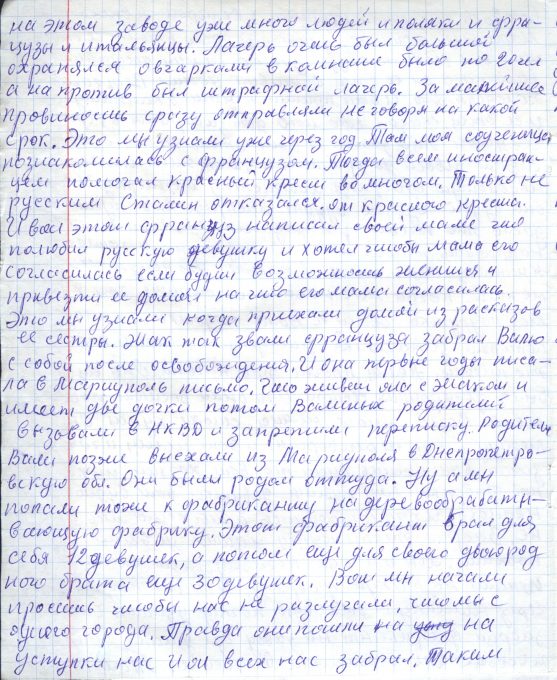 на этом заводе уже много людей и поляки и фран-
цузы и итальянцы. Лагерь очень был большой
охранялся овчарками в комнате было по 20 чел
а напротив был штрафной лагерь. За малейшее
провиность сразу отправляли не говоря на какой
срок. Это мы узнали уже через год. Там моя соученица
познакомилась с французом. Тогда всем иностран-
цам помогал красный крест во многом. Только не
русским Сталин отказался от красного креста.
И вот этот француз написал своей маме что
полюбил русскую девушку и хотел чтобы мама его
согласилась если будит возможность женится и
привезти ее домой на что его мама согласилась.
Это мы узнали когда приехали домой из расказов
ее сестры. Жак так звали француза забрал Валю
с собой после освобождения. И она первые годы писа-
ла в Мариуполь письмо. Что живет она с Жаком и
имеет две дочки потом Валиных родителей
вызывали в НКВД и запретили переписку. Родители
Вали позже выехали из Мариуполя в Днепропетро-
вскую обл. Они были родом оттуда. Ну а мы
попали тоже к фабриканту на деревообрабаты-
вающую фабрику. Этот фабрикант брал для
себя 12 девушек, а потом еще для своего двоюрод
ного брата еще 30 девушек. Вот мы начали
просить чтобы нас не разлучали, что мы с
одного города. Правда они пошли на на
уступки нас и он всех нас забрал. Таким